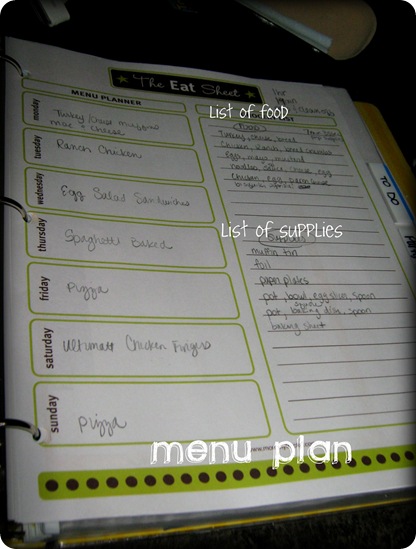 The Eat Sheet
MENU PLANNER
monday
Turkey/cheese muffins
mac + cheese
tuesday
Ranch Chicken
wednesday
Egg Salad Sandwiches
thursday
Spaghetti Baked
friday
Pizza
saturday
Ultimate Chicken Fingers
sunday
Pizza
List of fooD
FOOD
Turkey, cheese, bread
Chicken, ranch, bread crumbs
Eggs, mayo, mustard
noodles, sauce, cheese, egg
Chicken, egg,
List of suPPLies
Supplies
muffin tin
foil
paper plates
pot, bowl, egg slicer, spoon
pot, baking dish, spoon
baking sheet
TO DO
menu plan